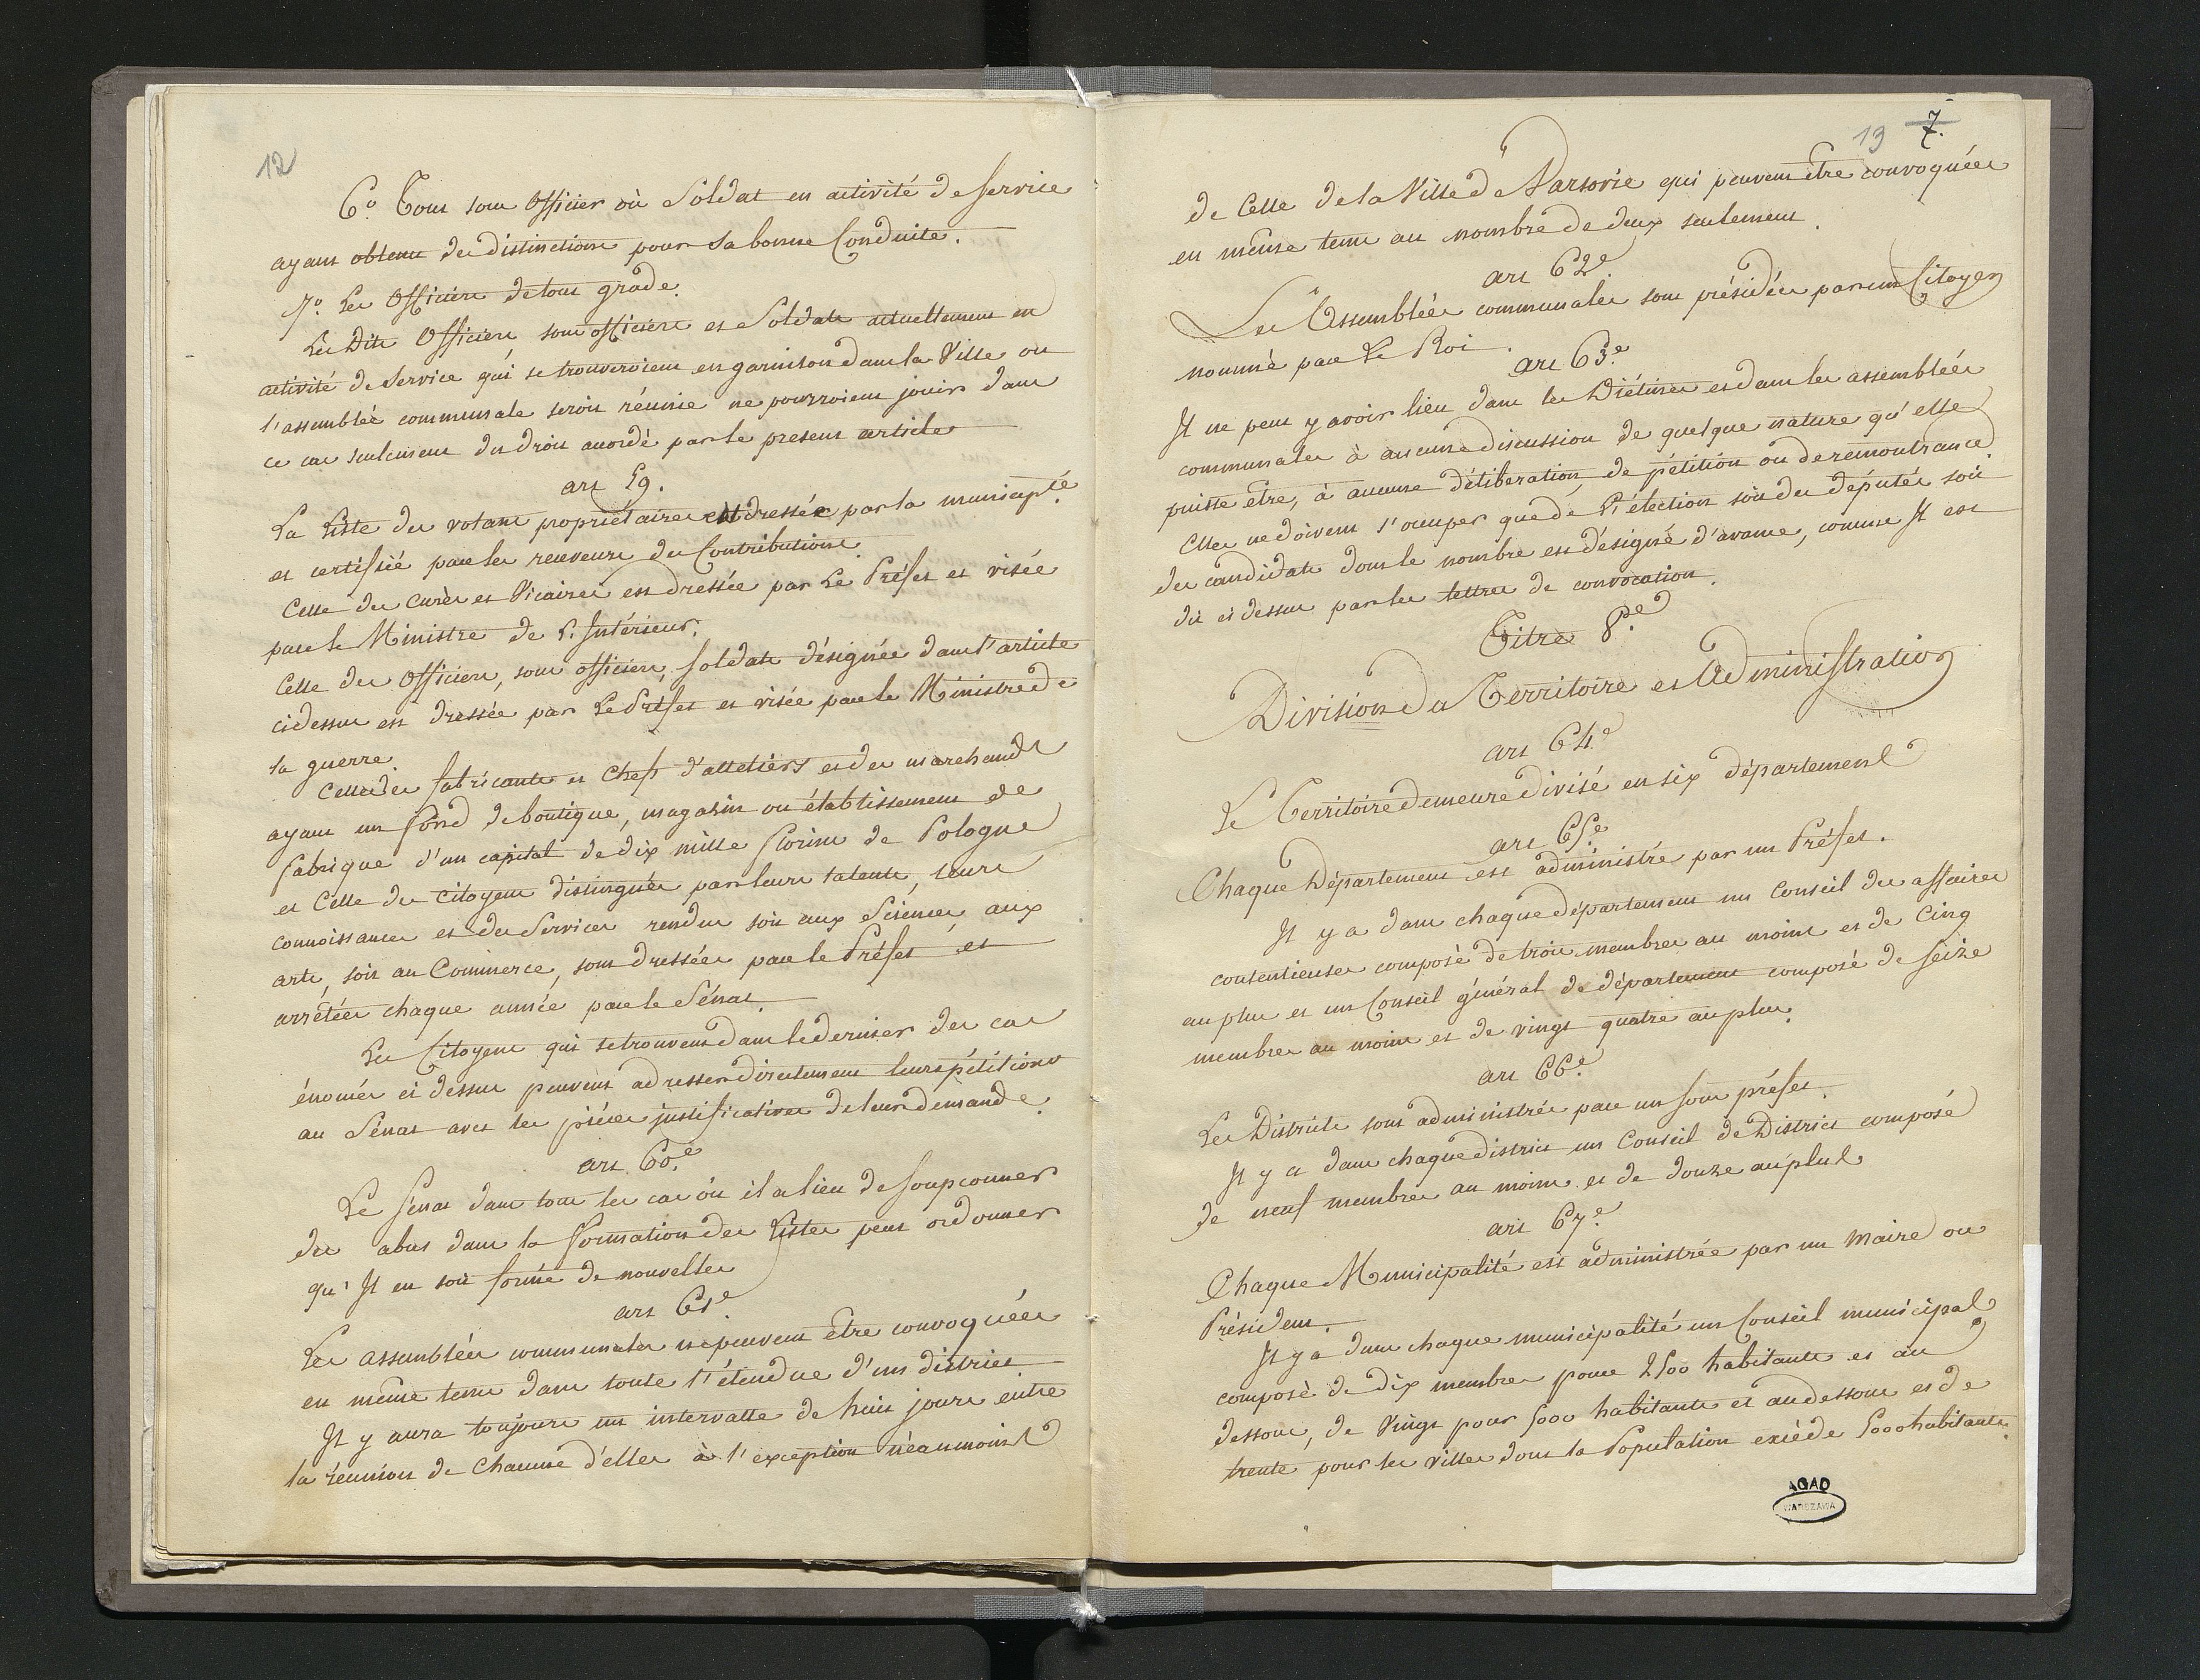 12
6.º Tout sous Officier où Soldat en activité de Service
ayant obtenu des distinctions pour sa bonne Conduite.
7.º Les Officiers de tous grade.
Les Dits Officiers sous officiers et Soldats actuellement en
activité de Service qui se trouveroient en garnison dans la Ville ou
l'assemblée communale seroit réunie ne pourroient jouir dans
ce cas seulement du droit accordé par le present article
art 59.
La Liste des votans propriétaires est dressée par la municipté
et certifiée par les receveurs des Contributions.
Celle des curés et Vicaires est dressée par Le Préfet et visée
par le Ministre de L'Intérieur.
Celle des Officiers, sous officiers, Soldats désignés dans l'article
cidessus est dressée par Le Préfet et visée par le Ministre de
la guerre.
Celle des fabricants et Chefs d'atteliers et des marchands
ayant un fond de boutique, magasin ou établissement de
fabrique d'un capital de dix mille florins de Pologne
et Celle des Citoyens distingués par leurs talents, leurs
connoissances et des Services rendus soit aux Sciences, aux
arts, soit au Commerce, sont dressées par le Préfet et
arrêtées chaque année par le Sénat.
Les Citoyens qui se trouvent dans le dernier des cas
énoncés ci dessus peuvent adresser directement leurs pétitions
au Sénat avec les pièces justificatives de leur demande.
art. 60.e
Le Sénat dans tous les cas où il a lieu de Soupconner
des abus dans la formation des Listes peut ordonner
qu'Il en soit formé de nouvelles
art 61.e
Les assemblées communales ne peuvent être convoquées
en même tems dans toute l'étendue d'un district
Il y aura toujours un intervalle de huit jours entre
la réunion de Chacune d'elles à l'exception néanmoins
13 7.
de Celle de la Ville de Varsovie qui peuvent être convoquées
en même tems au nombre de deux seulement.
art 62.e
Les Assemblées communales sont présidées par un Citoyen
nommé par Le Roi.
art 63.e
Il ne peut y avoir lieu dans les Diétines et dans les assemblées
communales à aucune discussion de quelque nature qu'elle
puisse être, à aucune déliberation, de pétition ou de remontrance.
Elles ne doivent s'occuper que de L'élection soit des députés soit
des candidats dont le nombre est désigné d'avance, comme Il est
dit ci dessus par les lettres de convocation.
Titre 8.e
Division du Territoire et Administration
art 64.e
Le Territoire demeure divisé en six départemens
art 65.e
Chaque Département est administré par un Préfet.
Il y a dans chaque département un Conseil des affaires
contentieuses composé de trois membres au moins et de Cinq
au plus et un Conseil général de département composé de Seize
membres au moins et de vingt quatre au plus.
art 66.e
Les Districts sont administrés par un sous préfet.
Il y a dans chaque district un Conseil de District composé
de neuf membres au moins et de douze au plus
art 67.e
Chaque Municipalité est administrée par un Maire ou
Président.
Il y a dans chaque municipalité un Conseil municipal
composé de dix membres pour 2500 habitants et au
dessous, de Vingt pour 5000 habitants et au dessous et de
trente pour les villes dont la Population excède 5000 habitants.
AGAD
WARSZAWA